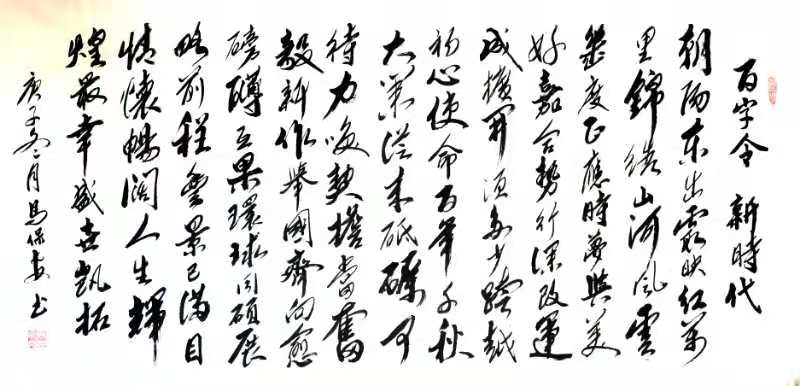 百字令 新時代
朝陽東出霞映紅萬
里錦繡山河風雲
幾度正應時夢與美
好嘉合勢行深改運
成擴開須多少跨越
初心使命百年千秋
大業從來砥礪可
待力喚契擔當奮
毅新作舉國齊向愈
磅礴互果環球同碩展
略前程景已滿目
情懷暢闊人生輝
煌最幸盛世凱拓
庚子冬月馬保安書